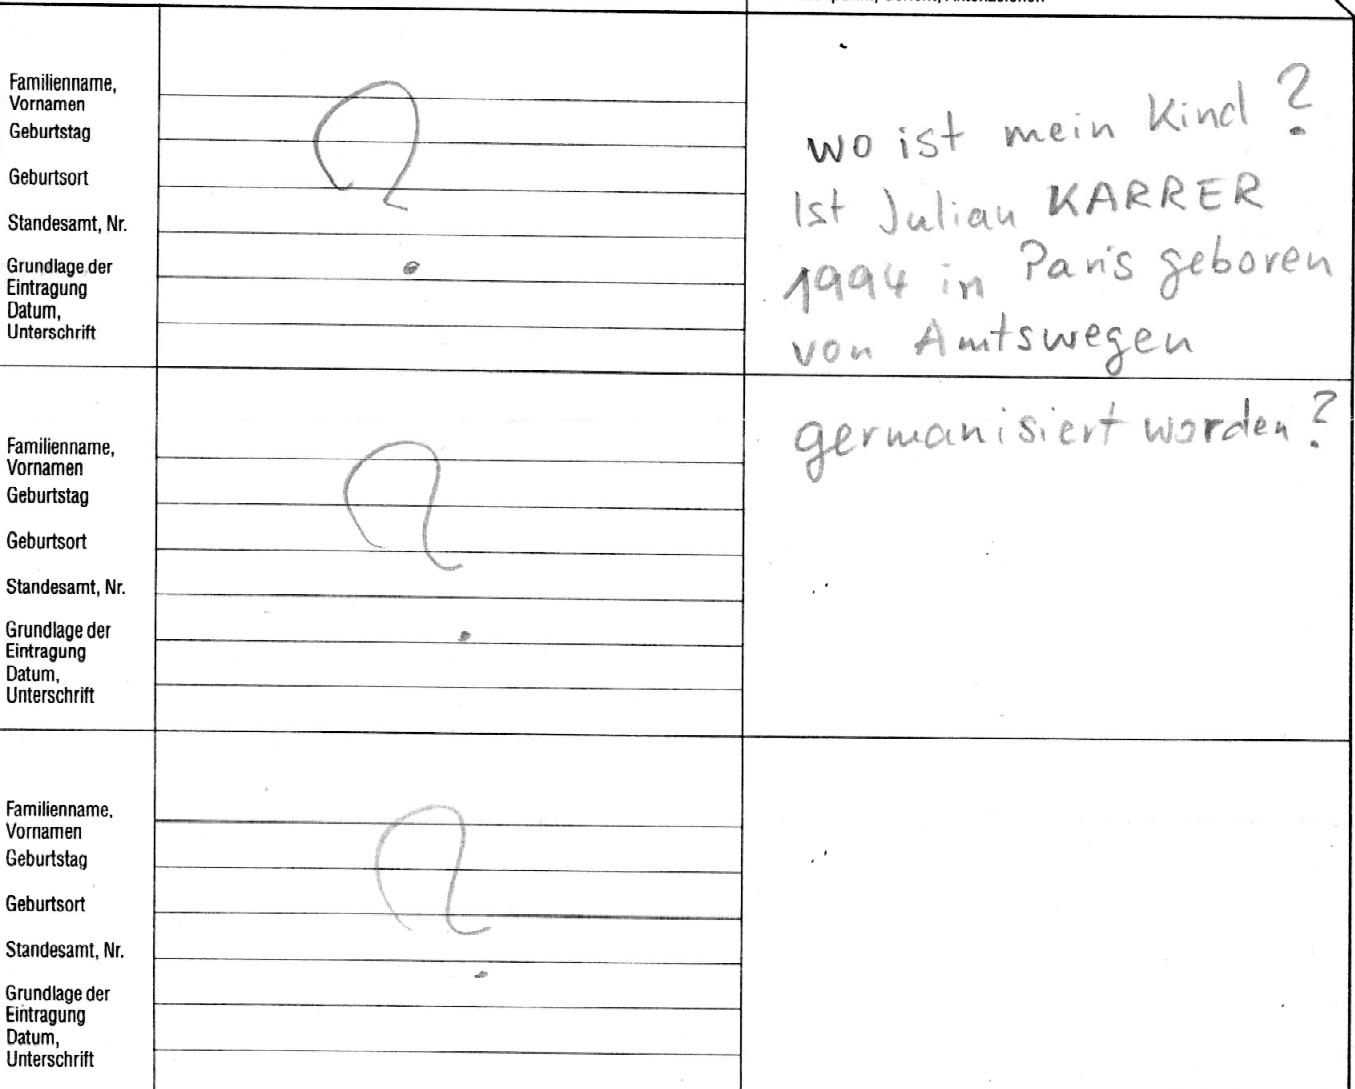 Familienname,
Vornamen
Geburtstag
Geburtsort
Standesamt, Nr.
Grundlage der
Eintragung
Datum,
Unterschrift
?
wo ist mein Kind ?
Ist Julian KARRER
1994 in Paris geboren
von Amtswegen
germanisiert worden ?
Familienname,
Vornamen
Geburtstag
Geburtsort
Standesamt, Nr.
Grundlage der
Eintragung
Datum,
Unterschrift
?
Familienname,
Vornamen
Geburtstag
Geburtsort
Standesamt, Nr.
Grundlage der
Eintragung
Datum,
Unterschrift
?